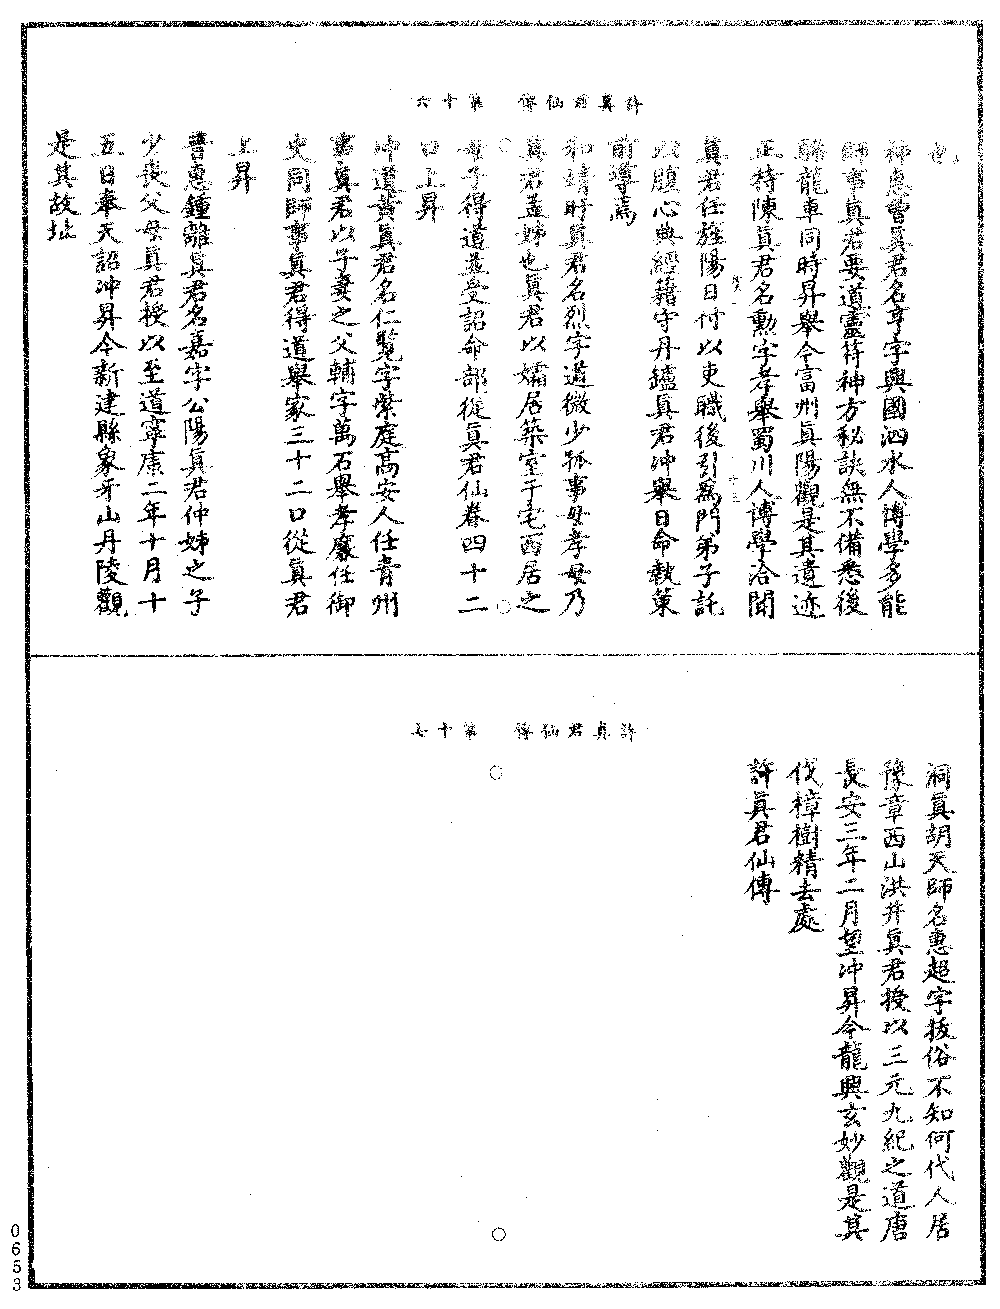 許真君仙傳　第十六
也
神惠曾真君名亨字興國泗水人博學多能
師事真君要道靈符神方秘訣無不備悉後
驂龍車同時昇舉今富州真陽觀是其遺迹
正特陳真君名勳字孝舉蜀川人博學洽聞
真君任旌陽日付以吏職後引爲門弟子託
以腹心典經籍守丹鑪真君沖舉日命執策
前導焉
和靖時真君名烈字道微少孤事母孝母乃
真君孟姊也真君以孀居築室于宅西居之
母子得道並受詔命部從真君仙眷四十二
口上昇
沖道黃真君名仁覽字紫庭高安人任青州
真君以子妻之父輔字萬石舉孝廉任御
史同師事真君得道舉家三十二口從真君
上昇
普惠鍾離真君名嘉字公陽真君仲姊之子
少喪父母真君授以至道寧康二年十月十
五日奉天詔沖昇今新建縣象牙山丹陵觀
是其故址
許真君仙傳　第十七
洞真胡天師名惠超字拔俗不知何代人居
豫章西山洪井真君授以三元九紀之道唐
長安三年二月望沖昇今龍興玄妙觀是其
伐樟樹精去處
許真君仙傳
0653